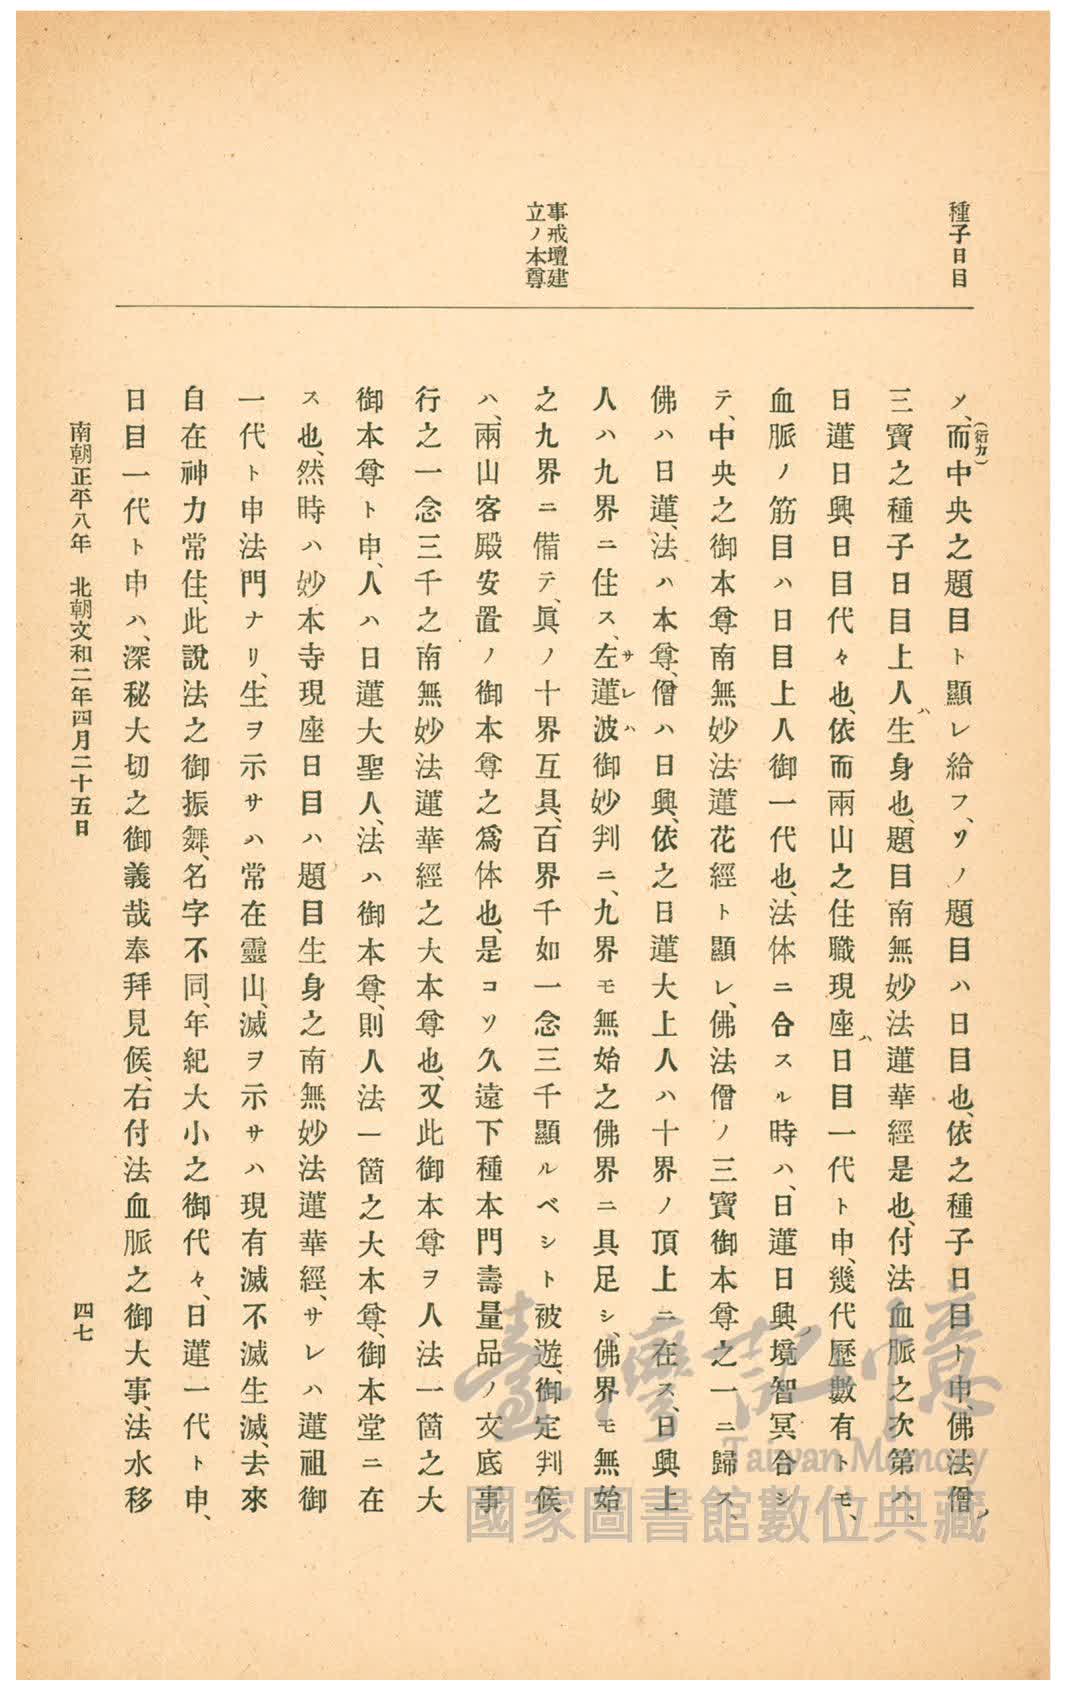 種子日目
事戒壇建
立ノ本尊
メ、而(衍カ)中央之題目ト顯レ給フ、ソノ題目ハ日目也、依之種子日目ト申、佛法僧ノ
三寶之種子日目上人ハ生身也、題目南無妙法蓮華經是也、付法血脈之次第ハ、
日蓮日興日目代々也、依而兩山之住職現座ハ日目一代ト申、幾代歷數有トモ、
血脈ノ筋目ハ日目上人御一代也、法体ニ合スル時ハ、日蓮日興ノ境智冥合シ
テ、中央之御本尊南無妙法蓮花經ト顯レ、佛法僧ノ三寶御本尊之一ニ歸ス、
佛ハ日蓮、法ハ本尊、僧ハ日興、依之日蓮大上人ハ十界ノ頂上ニ在ス、日興上
人ハ九界ニ住ス、左蓮波サレハ御妙判ニ、九界モ無始之佛界ニ具足シ、佛界モ無始
之九界ニ備テ、眞ノ十界互具、百界千如一念三千顯ルベシト被遊、御定判候
ハ、兩山客殿安置ノ御本尊之爲体也、是コソ久遠下種本門壽量品ノ文底事
行之一念三千之南無妙法蓮華經之大本尊也、又此御本尊ヲ人法一箇之大
御本尊ト申、人ハ日蓮大聖人、法ハ御本尊、則人法一箇之大本尊、御本堂ニ在
ス也、然時ハ妙本寺現座日目ハ題目生身之南無妙法蓮華經、サレハ蓮祖御
一代ト申法門ナリ、生ヲ示サハ常在靈山、滅ヲ示サハ現有滅不滅生滅、去來
自在神力常住、此說法之御振舞、名字不同、年紀大小之御代々、日蓮一代ト申、
日目一代ト申ハ、深秘大切之御義哉奉拜見候、右付法血脈之御大事、法水移
南朝正平八年　北朝文和二年四月二十五日
四七
臺灣記憶
Taiwan Memory
國家圖書館數位典藏